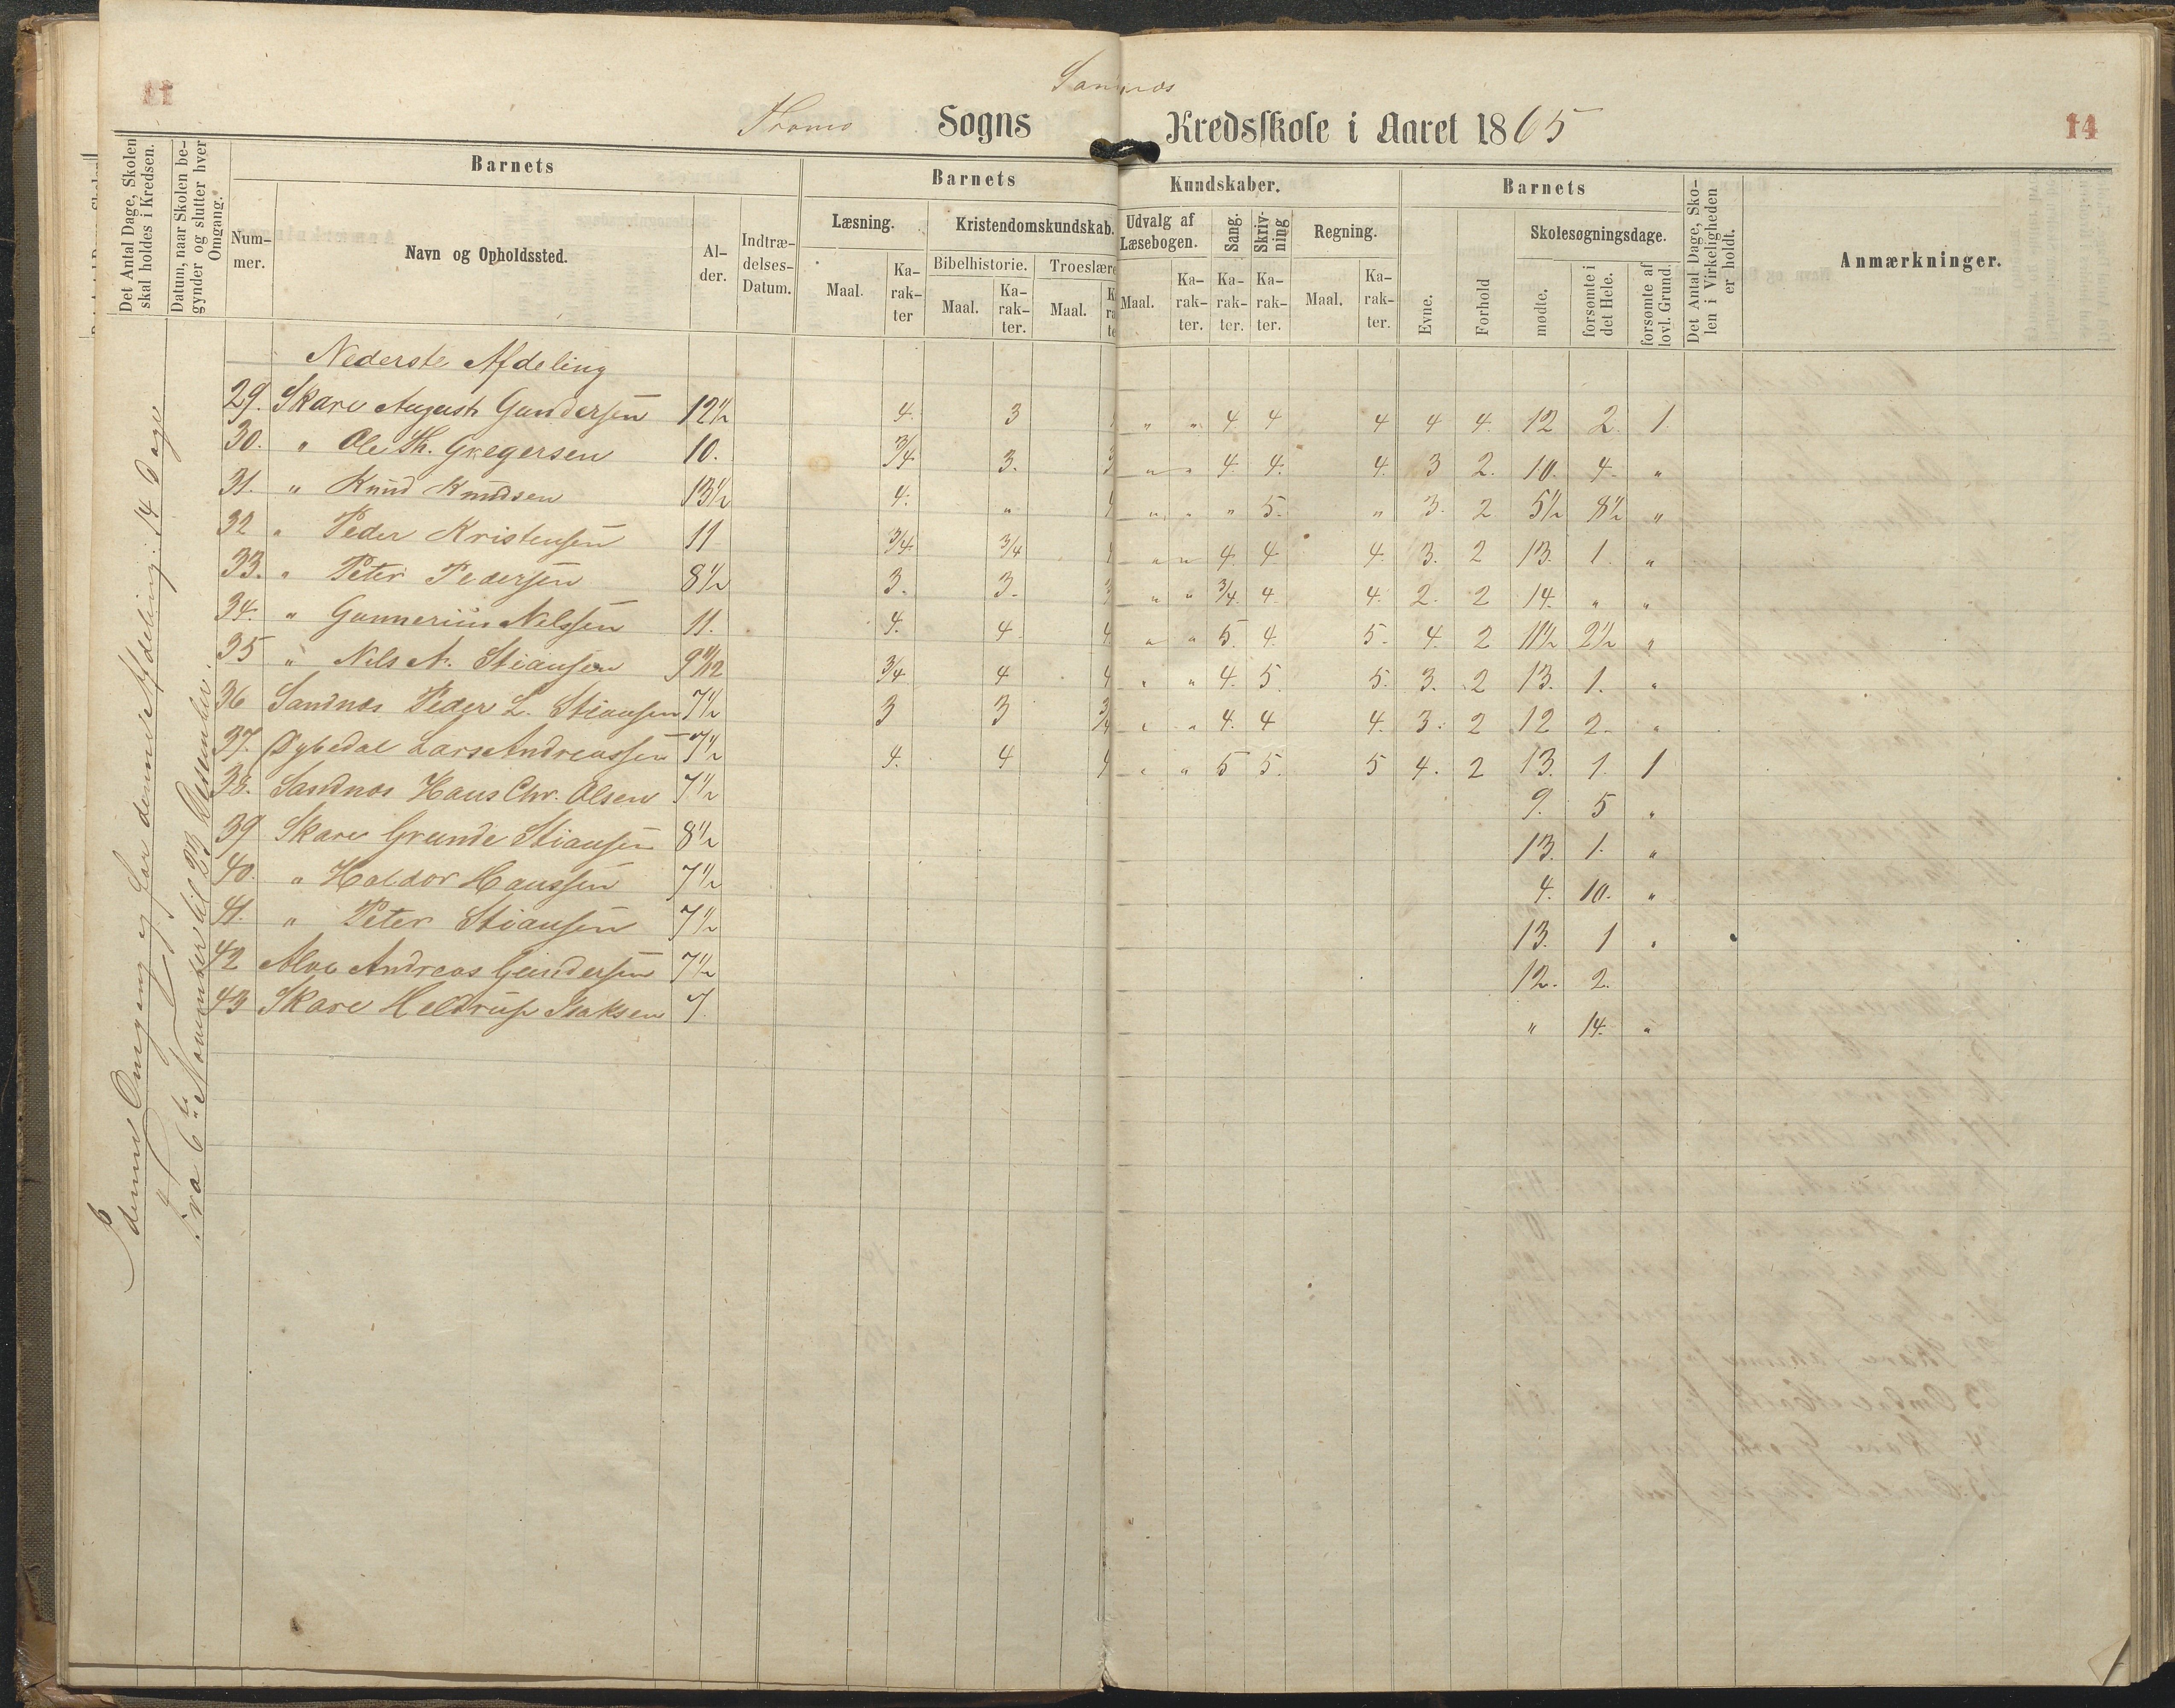 Sandnæs
Sogns Kredsskole i Aaret 1865
14
Det Antal Dage, Skolen skal holdes i Kredsen.
Datum, naar Skolen begynder og slutter hver Omgang.
Barnets
Barnets
Kundskaber.
Barnets
Det Antal Dage, Skolen i Virkeligheden er holdt.
Anmærkninger.
Nummer.
Navn og Opholdssted.
Alder.
Indtrædelses-Datum.
Læsning.
Kristendomskundskab.
Udvalg af Læsebogen.
Sang.
Skrivning
Regning.
Evne.
Forhold
Skolesøgningsdage.
Bibelhistorie.
Troeslære
Maal.
Karakter
Maal.
Karakter.
Maal.
Maal.
Karakter.
Karakter.
Karakter.
Maal.
Karakter.
mødte.
forsømte i det Hele.
forsømte af lovl. Grund.
I denne Omgang og for denne Afdeling: 14 Dage
Fra 6te November til 23 Desember.
Nederste Afdeling
29. Skare August Gundersen 12½ 4. 3 " " 4 4 4 4 4. 12 2. 1.
30. " Ole Th. Gregersen 10. 3/4 3. " " 4. 4. 4. 3 2. 10. 4. "
31. " Knud Knudsen 13½ 4. " " " " 5. " 3. 2 5½ 8½ "
32 " Peder Kristensen 11 3/4 3/4 " " 4. 4. 4. 3. 2 13. 1. "
33. " Peter Pedersen 8½ 3. 3. " " 3/4. 4. 4. 2. 2 14. " "
34. " Gunnerius Nelssen 11. 4. 4. " " 5. 4. 5. 4. 2 11½ 2½ "
35 " Nils A. Stiansen 9 3/4 4 " " 4. 5. 5. 3. 2 13. 1. "
36 Sandnæs Peder L. Stiansen 7½ 3 3 " " 4. 4 4. 3. 2 12 2. "
37. Dybedal Lars Andreassen 7½ 4. 4 " " 5 5. 5 4. 2 13. 1. 1
38. Sandnæs Hans Chr. Olsen 7½ 9. 5 "
39 Skare Grunde Stiansen 8½ 13. 1. "
40. " Haldor Hanssen 7½ 4. 10. "
41. " Peter Stiansen 7½ 13. 1 "
42 Alve Andreas Gundersen 7½ 12. 2.
43 Skare Heldrup Isaksen 7. " 14. "